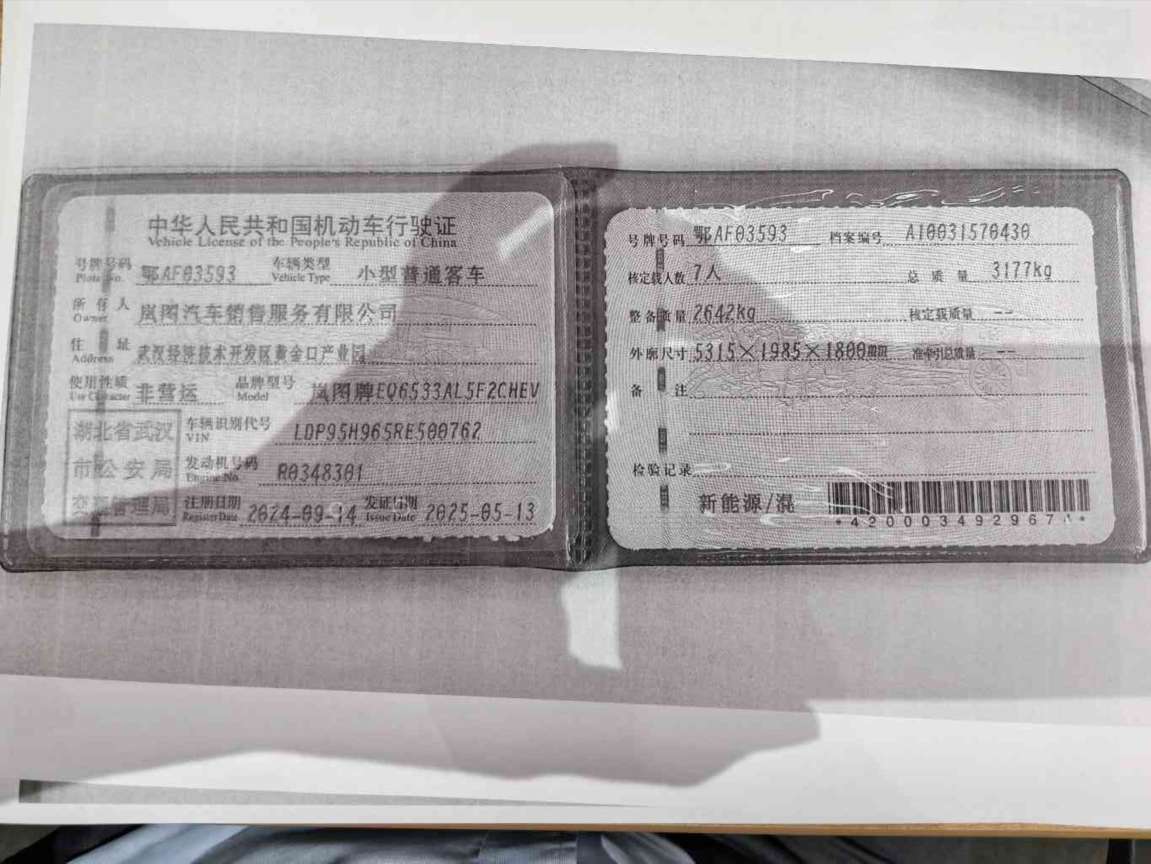 中华人民共和国机动车行驶证
Vehicle License of the People's Republic of China
号牌号码 鄂AF03593 车辆类型 小型普通客车
Plate No. Vehicle Type
所有人 岚图汽车销售服务有限公司
Owner
住址 武汉经济技术开发区黄金口产业园
Address
使用性质 非营运 品牌型号 岚图牌EQ6533AL5F2CHEV
Use Character Model
湖北省武汉
市公安局
交通管理局
车辆识别代号 LDP95H965RE500762
VIN
发动机号码 R0348301
Engine No.
注册日期 2024-09-14 发证日期 2025-05-13
Register Date Issue Date
号牌号码 鄂AF03593 档案编号 A10031570430
核定载人数 7人 总质量 3177kg
整备质量 2642kg 核定载质量 --
外廓尺寸 5315×1985×1800mm 准牵引总质量 --
备注
检验记录
新能源/混
*4200034929671*